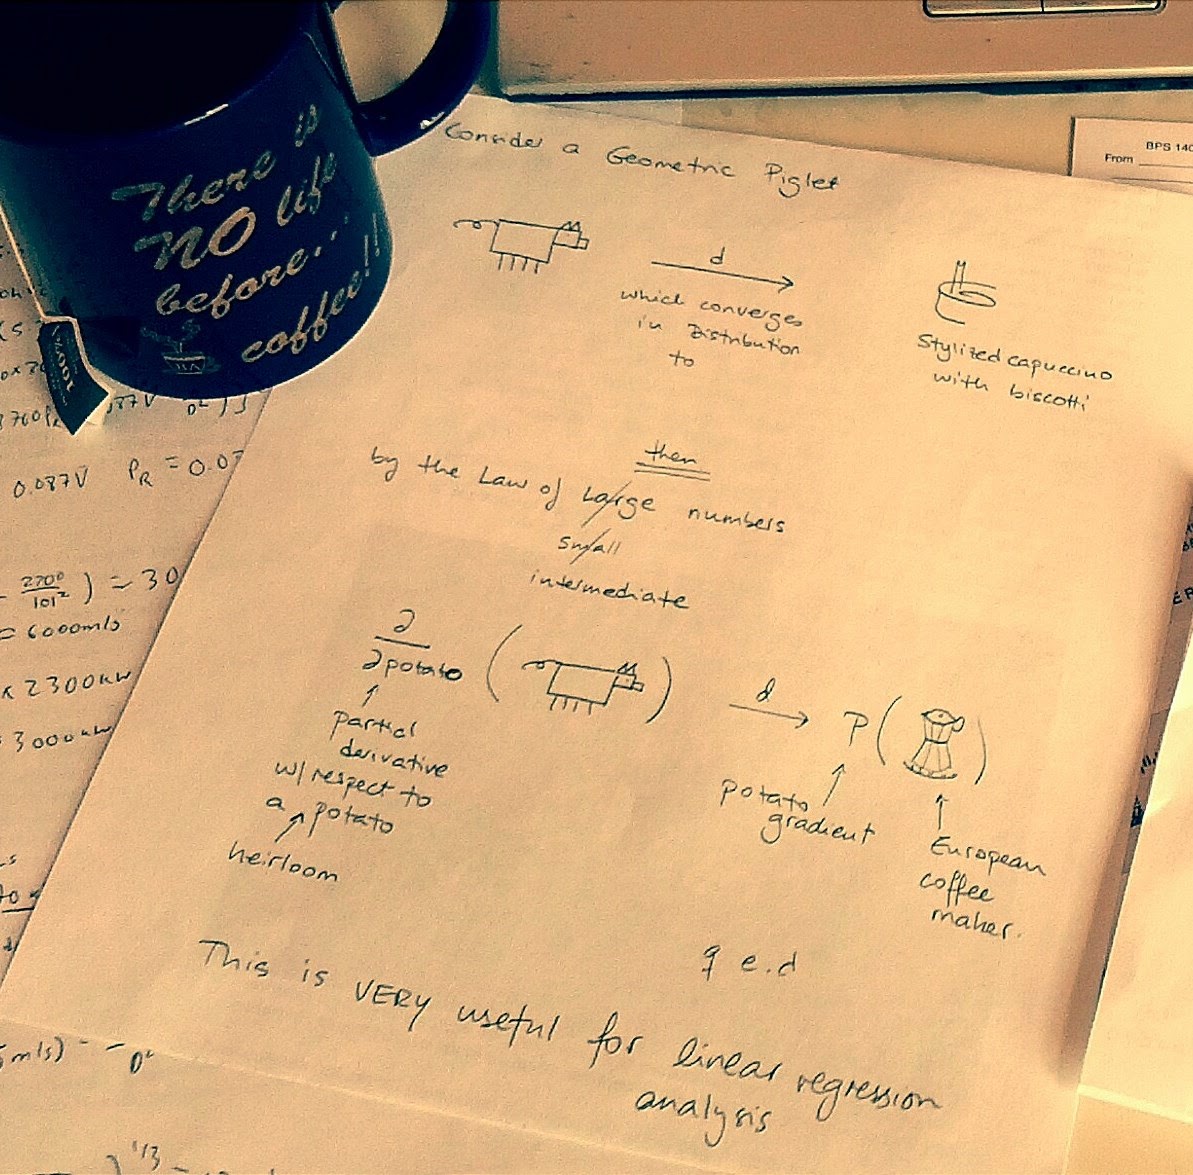 There is
NO life
before..
coffee!!!
100%
BPS 140
From
Consider a Geometric Piglet
d
which converges
in Distribution
to
Stylized capuccino
with biscotti
then
by the Law of Large numbers
small
intermediate
∂
∂potato
d
P
partial
derivative
w/ respect to
a potato
heirloom
potato
gradient
European
coffee
maker.
q e.d
This is VERY useful for linear regression
analysis
0.087V P_R = 0.07
2700
101²
) = 30
= 6000m/s
x 2300kw
3000kw